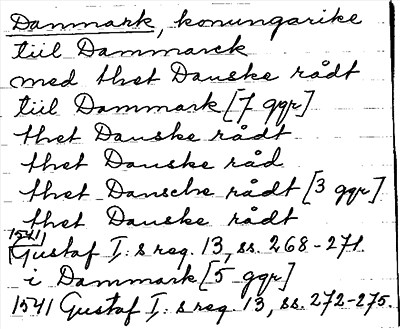 Danmark, konungarike
till Danmmarck
med thet Danske rådt
till Danmmark [7 ggr]
thet Danske rådt
thet Danske råd
thet Dansche rådt [3 ggr]
thet Danske rådt
1541
Gustaf I:s reg. 13, ss. 268-271.
i Danmmark [5 ggr]
1541 Gustaf I:s reg. 13, ss. 272-275.